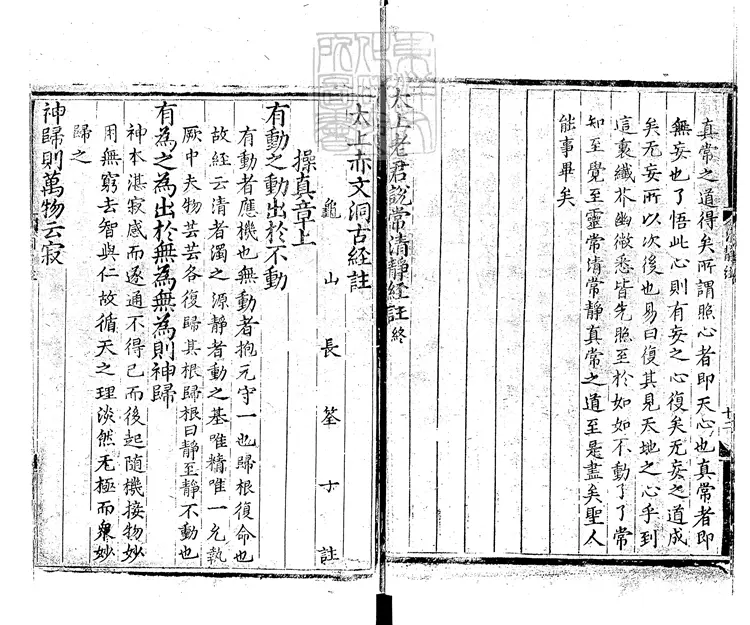 真常之道得矣所謂照心者即天心也真常者即
無妄也了悟此心則有妄之心復矣无妄之道成
矣无妄所以次復也易曰復其見天地之心乎到
這裏纖芥幽微悉皆先照至於如如不動了了常
知至覺至靈常清常靜真常之道至是盡矣聖人
能事畢矣
太上老君說常清靜經註終
太上赤文洞古經註
龜山長筌子註
操真章上
有動之動出於不動
有動者應機也無動者抱元守一也歸根復命也
故經云清者濁之源靜者動之基唯精唯一允執
厥中夫物芸芸各復歸其根歸根曰靜至靜不動也
有為之為出於無為無為則神歸
神本湛寂感而遂通不得已而後起隨機接物妙
用無窮去智與仁故循天之理淡然无極而衆妙
歸之
神歸則萬物云寂